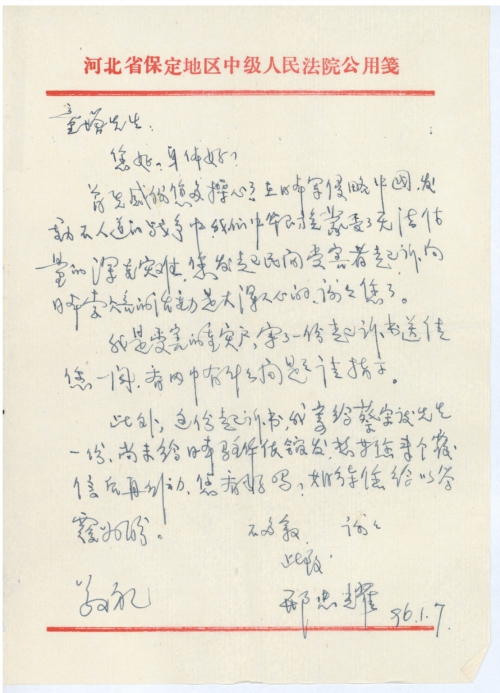 河北省保定地区中级人民法院公用笺
童增先生:
您好,身体好!
首先感谢您多操心了,日本军侵略中国,发
动不人道的战争中我们中华民族蒙受了无法估
量的深重灾难,您发起民间受害者起诉,向
日本索赔的活动是大得人心的,谢谢您了。
我是受害的重灾户,写了一份起诉书送给
您一阅,看内中有什么问题,请指示。
此外,这份起诉书,我寄给蔡 先生
一份,尚未给日本 发,
信后再行动,您看好吗,如 您给以答
复为盼。
不多叙 谢谢
此致
敬礼
邢忠耀 96.1.7.